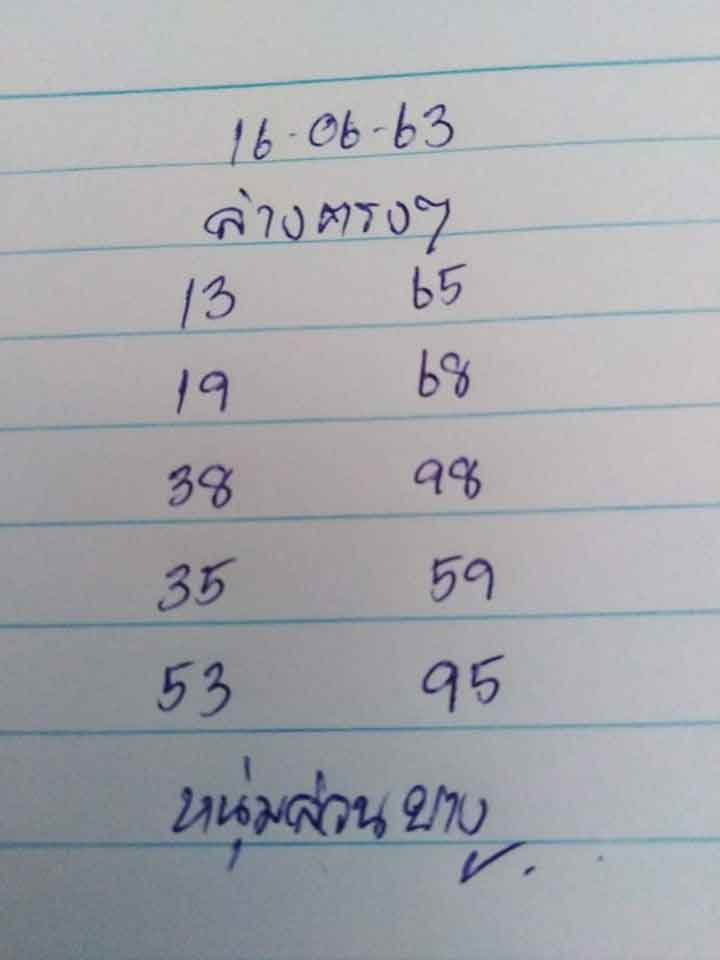 16-06-63
ล่างตรงๆ
13 65
19 68
38 98
35 59
53 95
หนุ่มสวนยาง